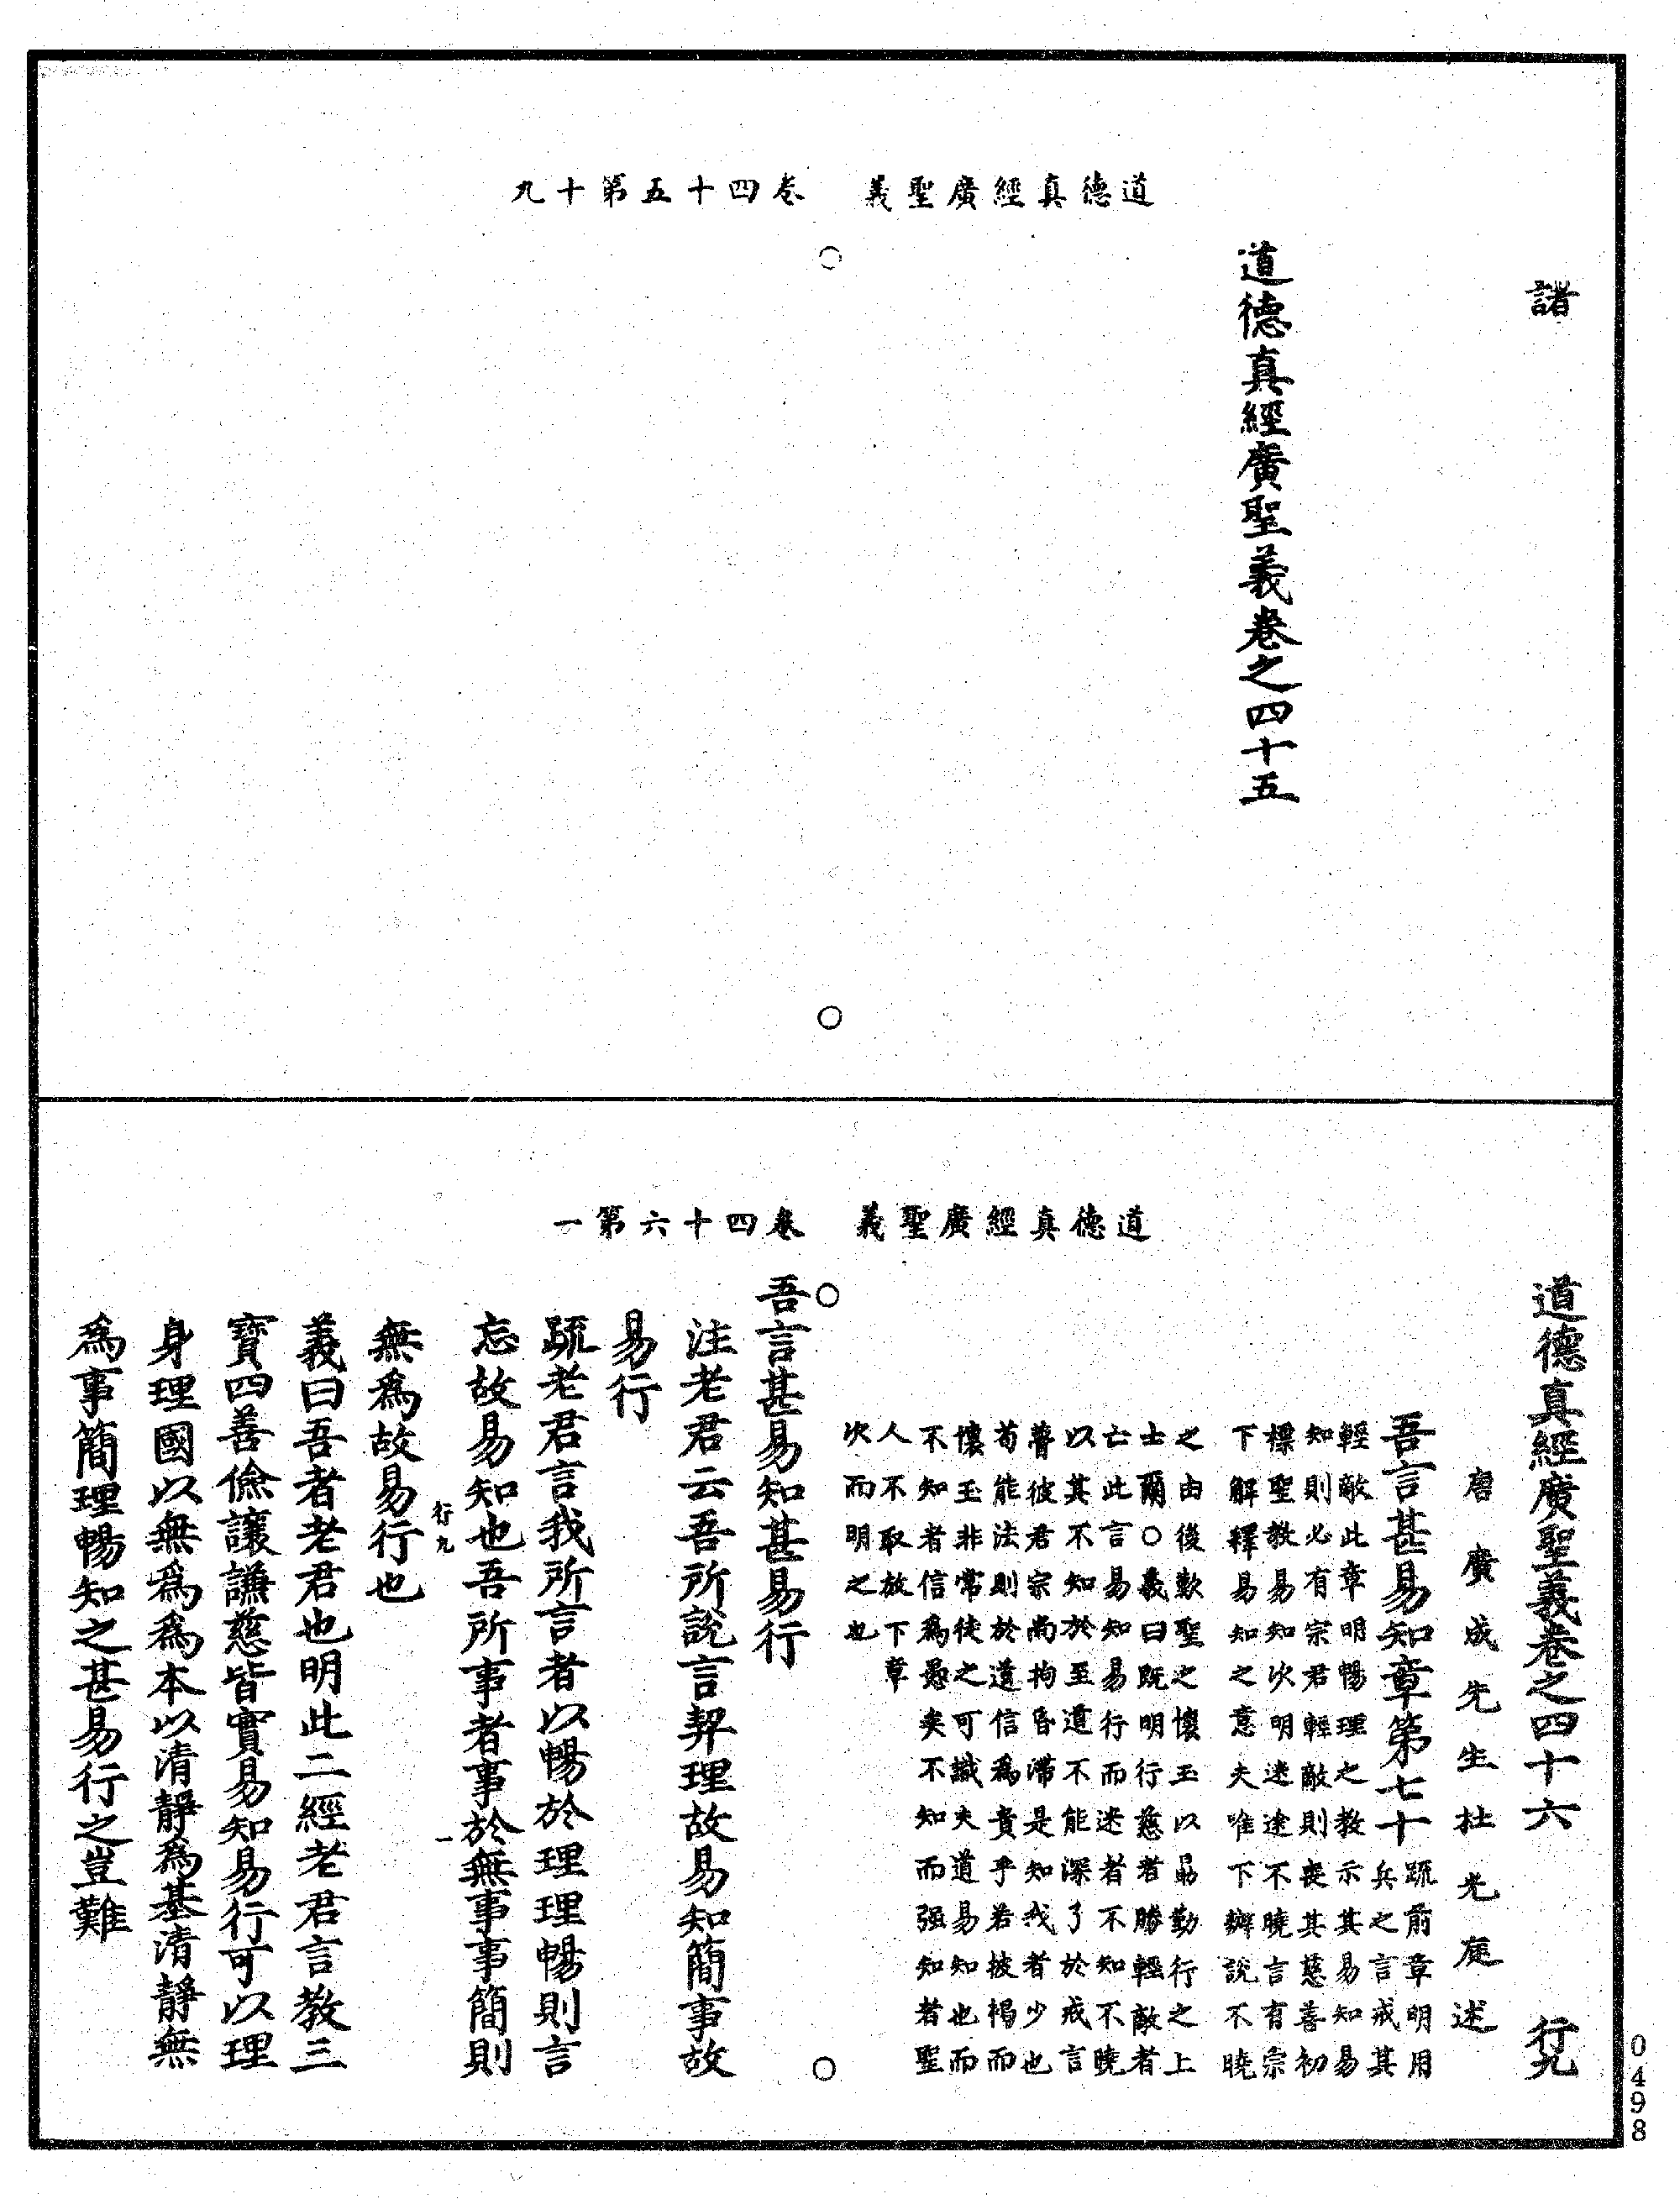 道德真經廣聖義　卷四十五第十九
諸
道德真經廣聖義卷之四十五
道德真經廣聖義　卷四十六第一
道德真經廣聖義卷之四十六　行九
唐廣成先生杜光庭述
吾言甚易知章第七十
疏前章明用
兵之言戒其
輕敵此章明暢理之教示其易知易
知則必有宗君輕敵則喪其慈善初
標聖教易知次明迷途不曉言有宗
下解釋易知之意夫唯下辯說不曉
之由後歎聖之懷玉以勗勤行之上
士爾○義曰既明行慈者勝輕敵者
亡此言易知易行而迷者不知不曉
以其不知於至道不能深了於戒言
瞢彼君宗尚拘昏滯是知我者少也
苟能法則於道信為貴乎若被褐而
懷玉非常徒之可識夫道易知也而
不知者信為愚矣不知而强知者聖
人不取故下章
次而明之也
吾言甚易知甚易行
注老君云吾所說言契理故易知簡事故
易行
疏老君言我所言者以暢於理理暢則言
忘故易知也吾所事者事於無事事簡則
行九　一
無為故易行也
義曰吾者老君也明此二經老君言教三
寶四善儉讓謙慈皆實易知易行可以理
身理國以無為為本以清靜為基清靜無
為事簡理暢知之甚易行之豈難
0498